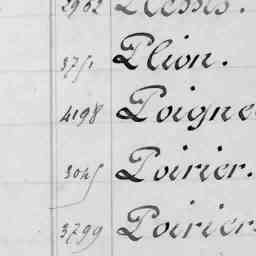 2962 Plessis.
3751 Plion.
4198 Poigne
3045 Poirier.
3799 Poirier